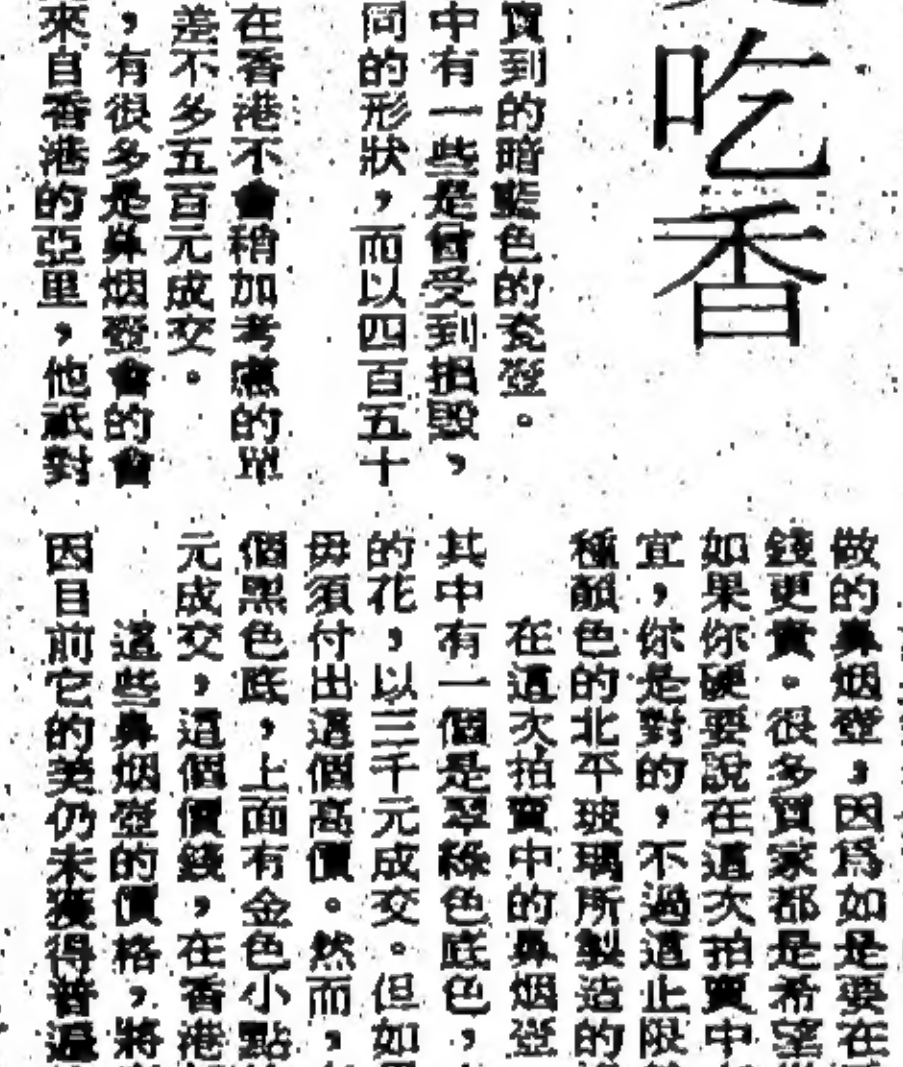 吃香
買到的暗藍色的瓷壺。
中有一些是曾受到損毀,
同的形狀,而以四百五十
在香港不會稍加考慮的單
差不多五百元成交。
,有很多是鼻烟壺會的會
來自香港的亞里,他祇對
做的鼻烟壺,因爲如是要在
錢更貴。很多買家都是希望
如果你硬要說在這次拍賣中
宜,你是對的,不過這止限
種顏色的北平玻璃所製造的
在這次拍賣中的鼻烟壺
其中有一個是翠綠色底色,
的花,以三千元成交。但如
毋須付出這個高價。然而,
個黑色底,上面有金色小點
元成交,這個價錢,在香港
這些鼻烟壺的價格,將
因目前它的美仍未獲得普遍